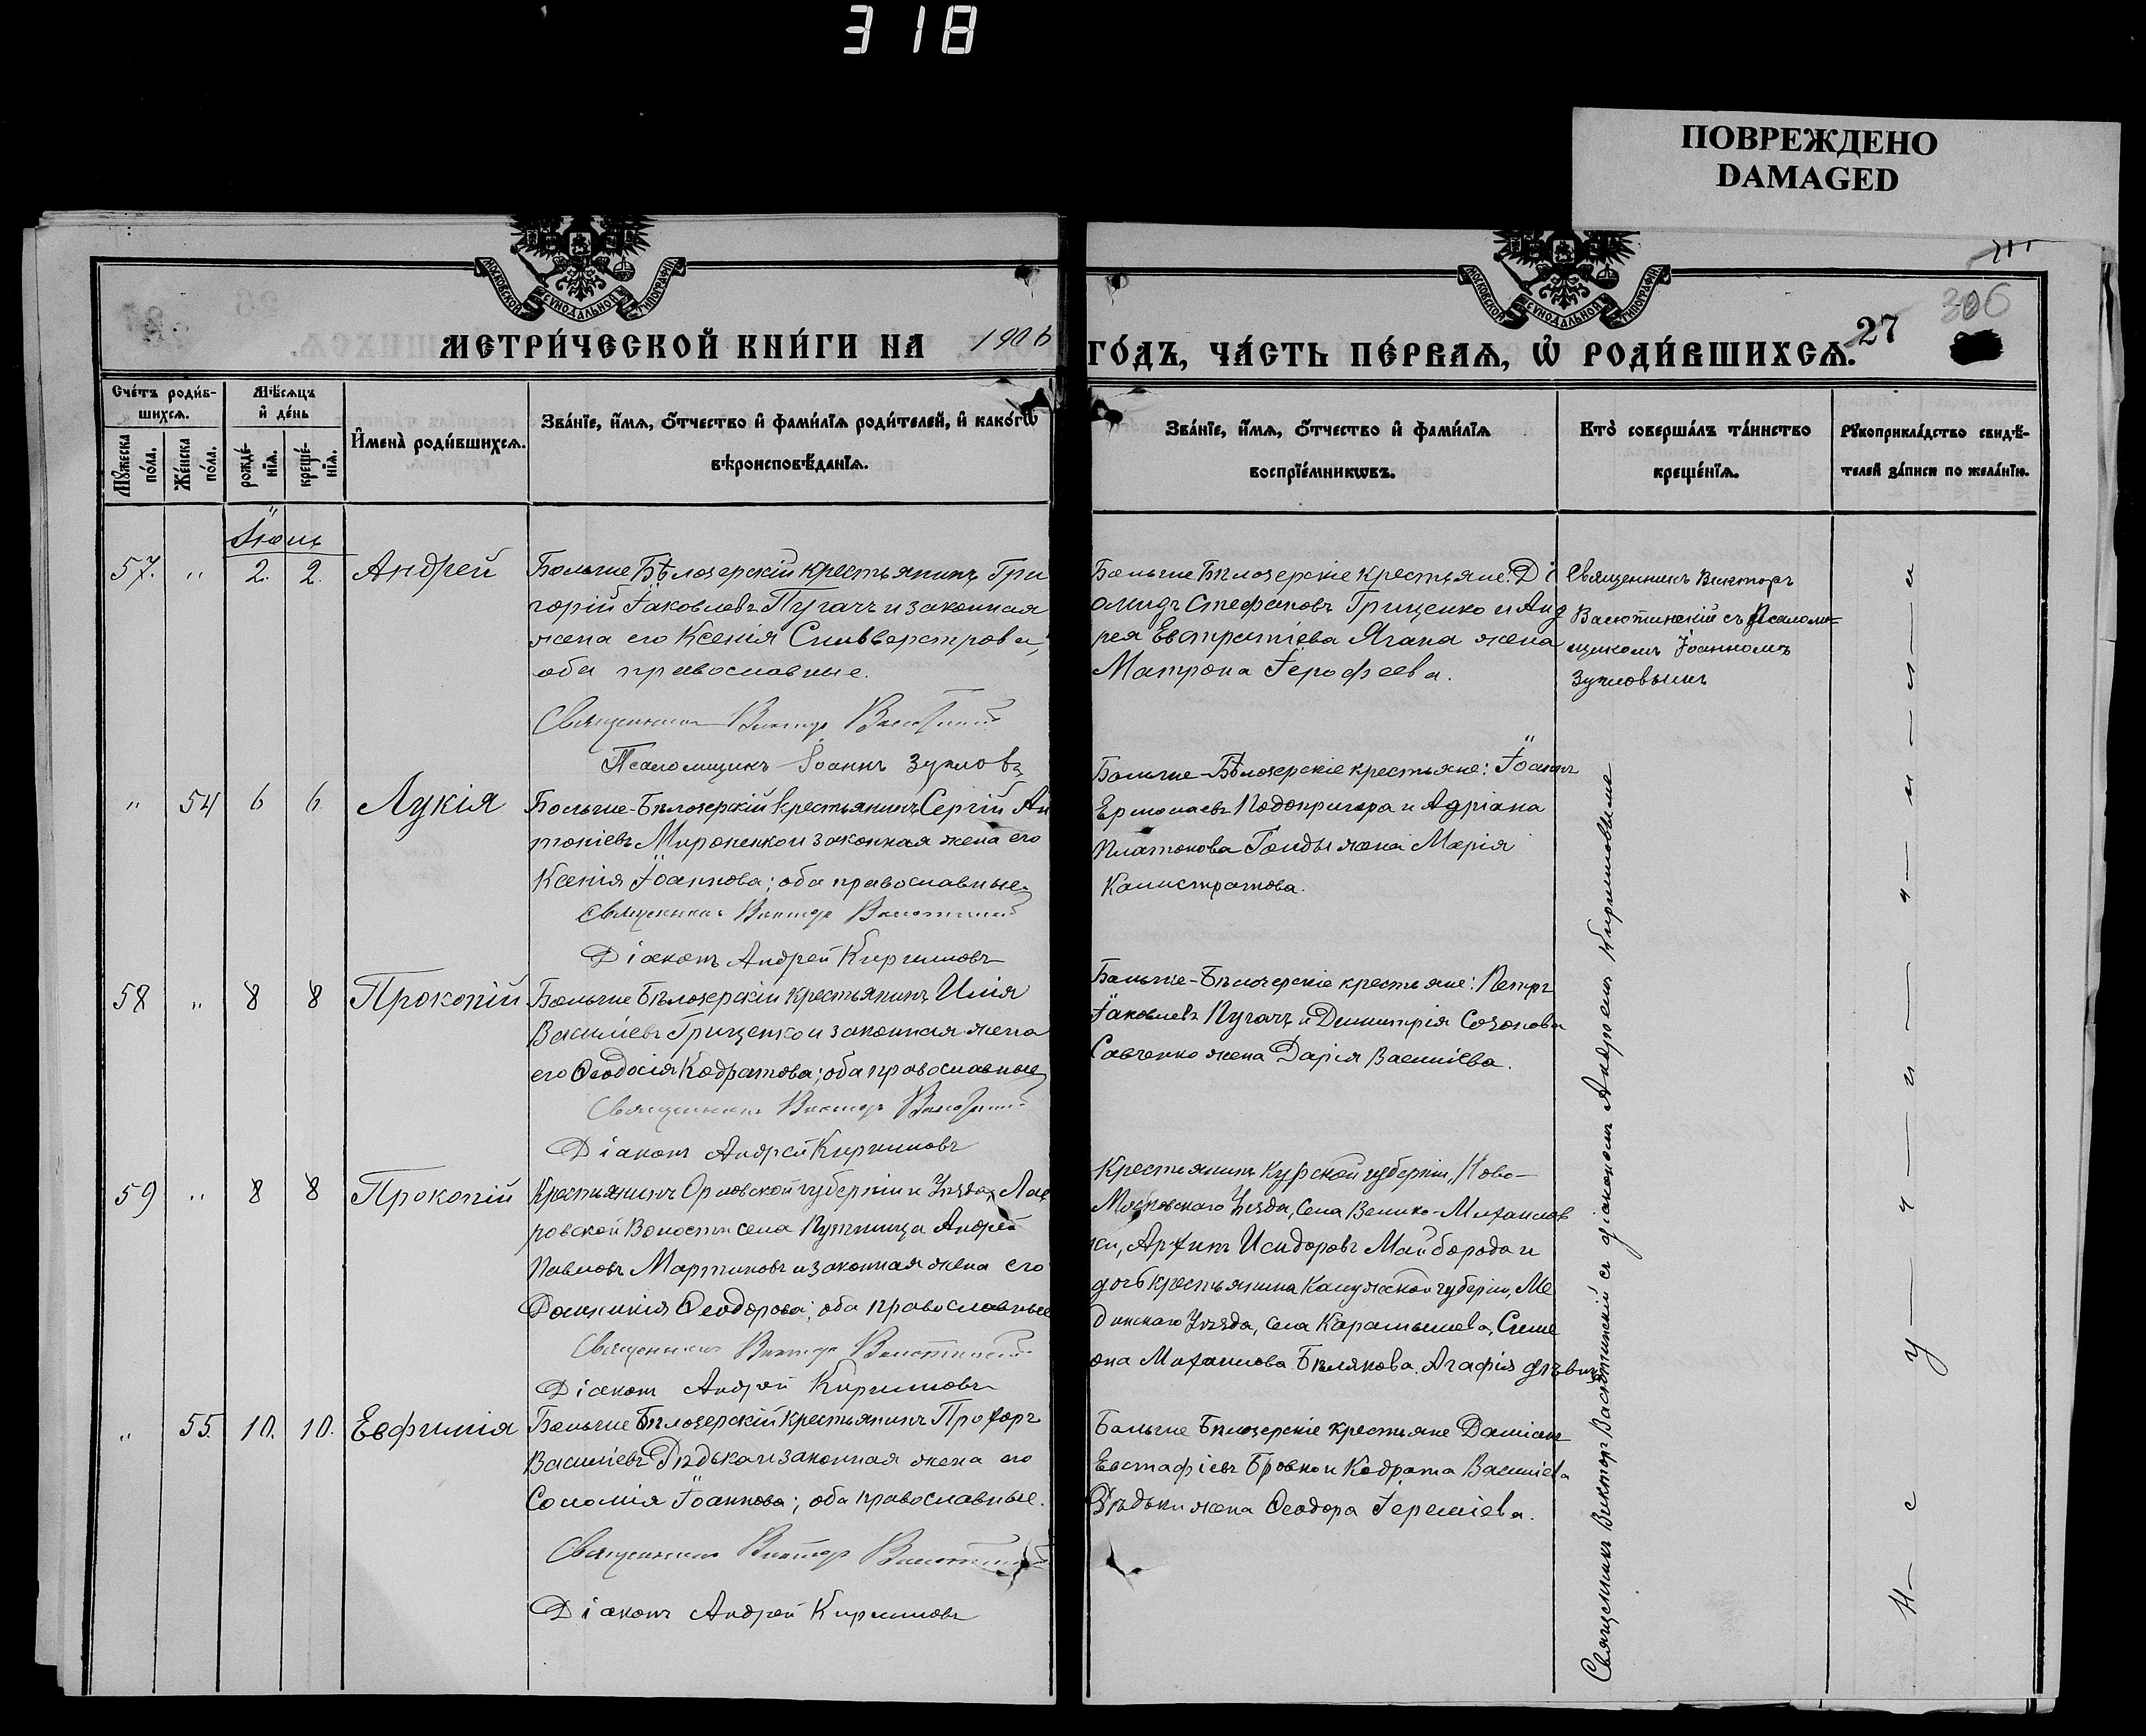 318
ПОВРЕЖДЕНО
DAMAGED
МОСКОВСКОЙ СѴНОДАЛЬНОЙ ТИПОГРАФІИ
МОСКОВСКОЙ СѴНОДАЛЬНОЙ ТИПОГРАФІИ
306
27
МЕТРИ́ЧЕСКОЙ КНИ́ГИ НА 1906
ГО́ДЪ, ЧА́СТЬ ПЕ́РВАѦ, Ѡ҆ РОДИ́ВШИХСѦ.
Сче́тъ роди́в-
шихсѧ.
Мꙋ́жеска
по́ла.
Же́нска
по́ла.
Мѣ́сѧцъ
и҆ де́нь
рожде́-
нїѧ.
креще́-
нїѧ.
И҆мена̀ роди́вшихсѧ.
Зва́нїе, и҆́мѧ, ѻ҆́тчество и҆ фами́лїѧ роди́телей, и҆ како́гѡ
вѣроисповѣ́данїѧ.
Зва́нїе, и҆́мѧ, ѻ҆́тчество и҆ фами́лїѧ
воспрїе́мникѡвъ.
Кто̀ соверша́лъ та́инство
креще́нїѧ.
Рꙋкоприкла́дство свидѣ́-
телей за́писи по жела́нїю.
Іюнь
57. " 2. 2. Андрей
Больше Бѣлозерскій крестьянинъ Гри
горій Іаковлевъ Пугачъ и законная
жена его Ксенія Сильверстрова,
оба православные.
Священникъ Викторъ Васютинскій
Псаломщикъ Іоаннъ Зуиловъ
Больше Бѣлозерскіе крестьяне: Ді
омидъ Стефановъ Грищенко и Анд
рея Евстратіева Ягана жена
Матрона Іерофеева.
Священникъ Викторъ
Васютинскій съ Псалом=
щикомъ Іоанномъ
Зуиловымъ
" 54 6 6 Лукія
Больше-Бѣлозерскій крестьянинъ Сергій Ан
тоніевъ Мироненко и законная жена его
Ксенія Іоаннова; оба православные.
Священникъ Викторъ Васютинскій
Діаконъ Андрей Кирилловъ
Больше-Бѣлозерскіе крестьяне: Іоаннъ
Ермолаевъ Подопригора и Адріана
Платонова Гонды жена Марія
Калистратова.
58 " 8 8 Прокопій
Больше Бѣлозерскій крестьянинъ Илія
Василіевъ Грищенко и законная жена
его Ѳеодосія Кодратова; оба православные
Священникъ Викторъ Васютинскій
Діаконъ Андрей Кирилловъ
Больше-Бѣлозерскіе крестьяне: Петръ
Іаковлевъ Пугачъ и Димитрія Созонова
Савченко жена Дарія Василіева.
59 " 8 8 Прокопій
Крестьянинъ Орловской губерніи и Уѣзда, Лав
ровской Волости села Путимца Андрей
Павловъ Мартиновъ и законная жена его
Домникія Ѳеодорова; оба православные
Священникъ Викторъ Васютинскій
Діаконъ Андрей Кирилловъ
Крестьянинъ Курской губерніи, Ново-
Московскаго Уѣзда, Села Велико-Михайлов
ки, Архипъ Исидоровъ Майборода и
дочь крестьянина Калужской губерніи, Ме
дынскаго Уѣзда, села Карамышева, Симе
она Михаилова Бѣлякова, Агафія дѣвица
" 55. 10. 10. Евфимія
Больше Бѣлозерскій Крестьянинъ Прохоръ
Василіевъ Рѣдька и законная жена его
Соломія Іоаннова; оба православные.
Священникъ Викторъ Васютинскій
Діаконъ Андрей Кирилловъ
Больше Бѣлозерскіе крестьяне Даміанъ
Евстафіевъ Бровко и Кодрата Василіева
Рѣдьки жена Ѳеодора Іереміева.
Священникъ Викторъ Васютинскій съ діакономъ Андреемъ Кирилловымъ